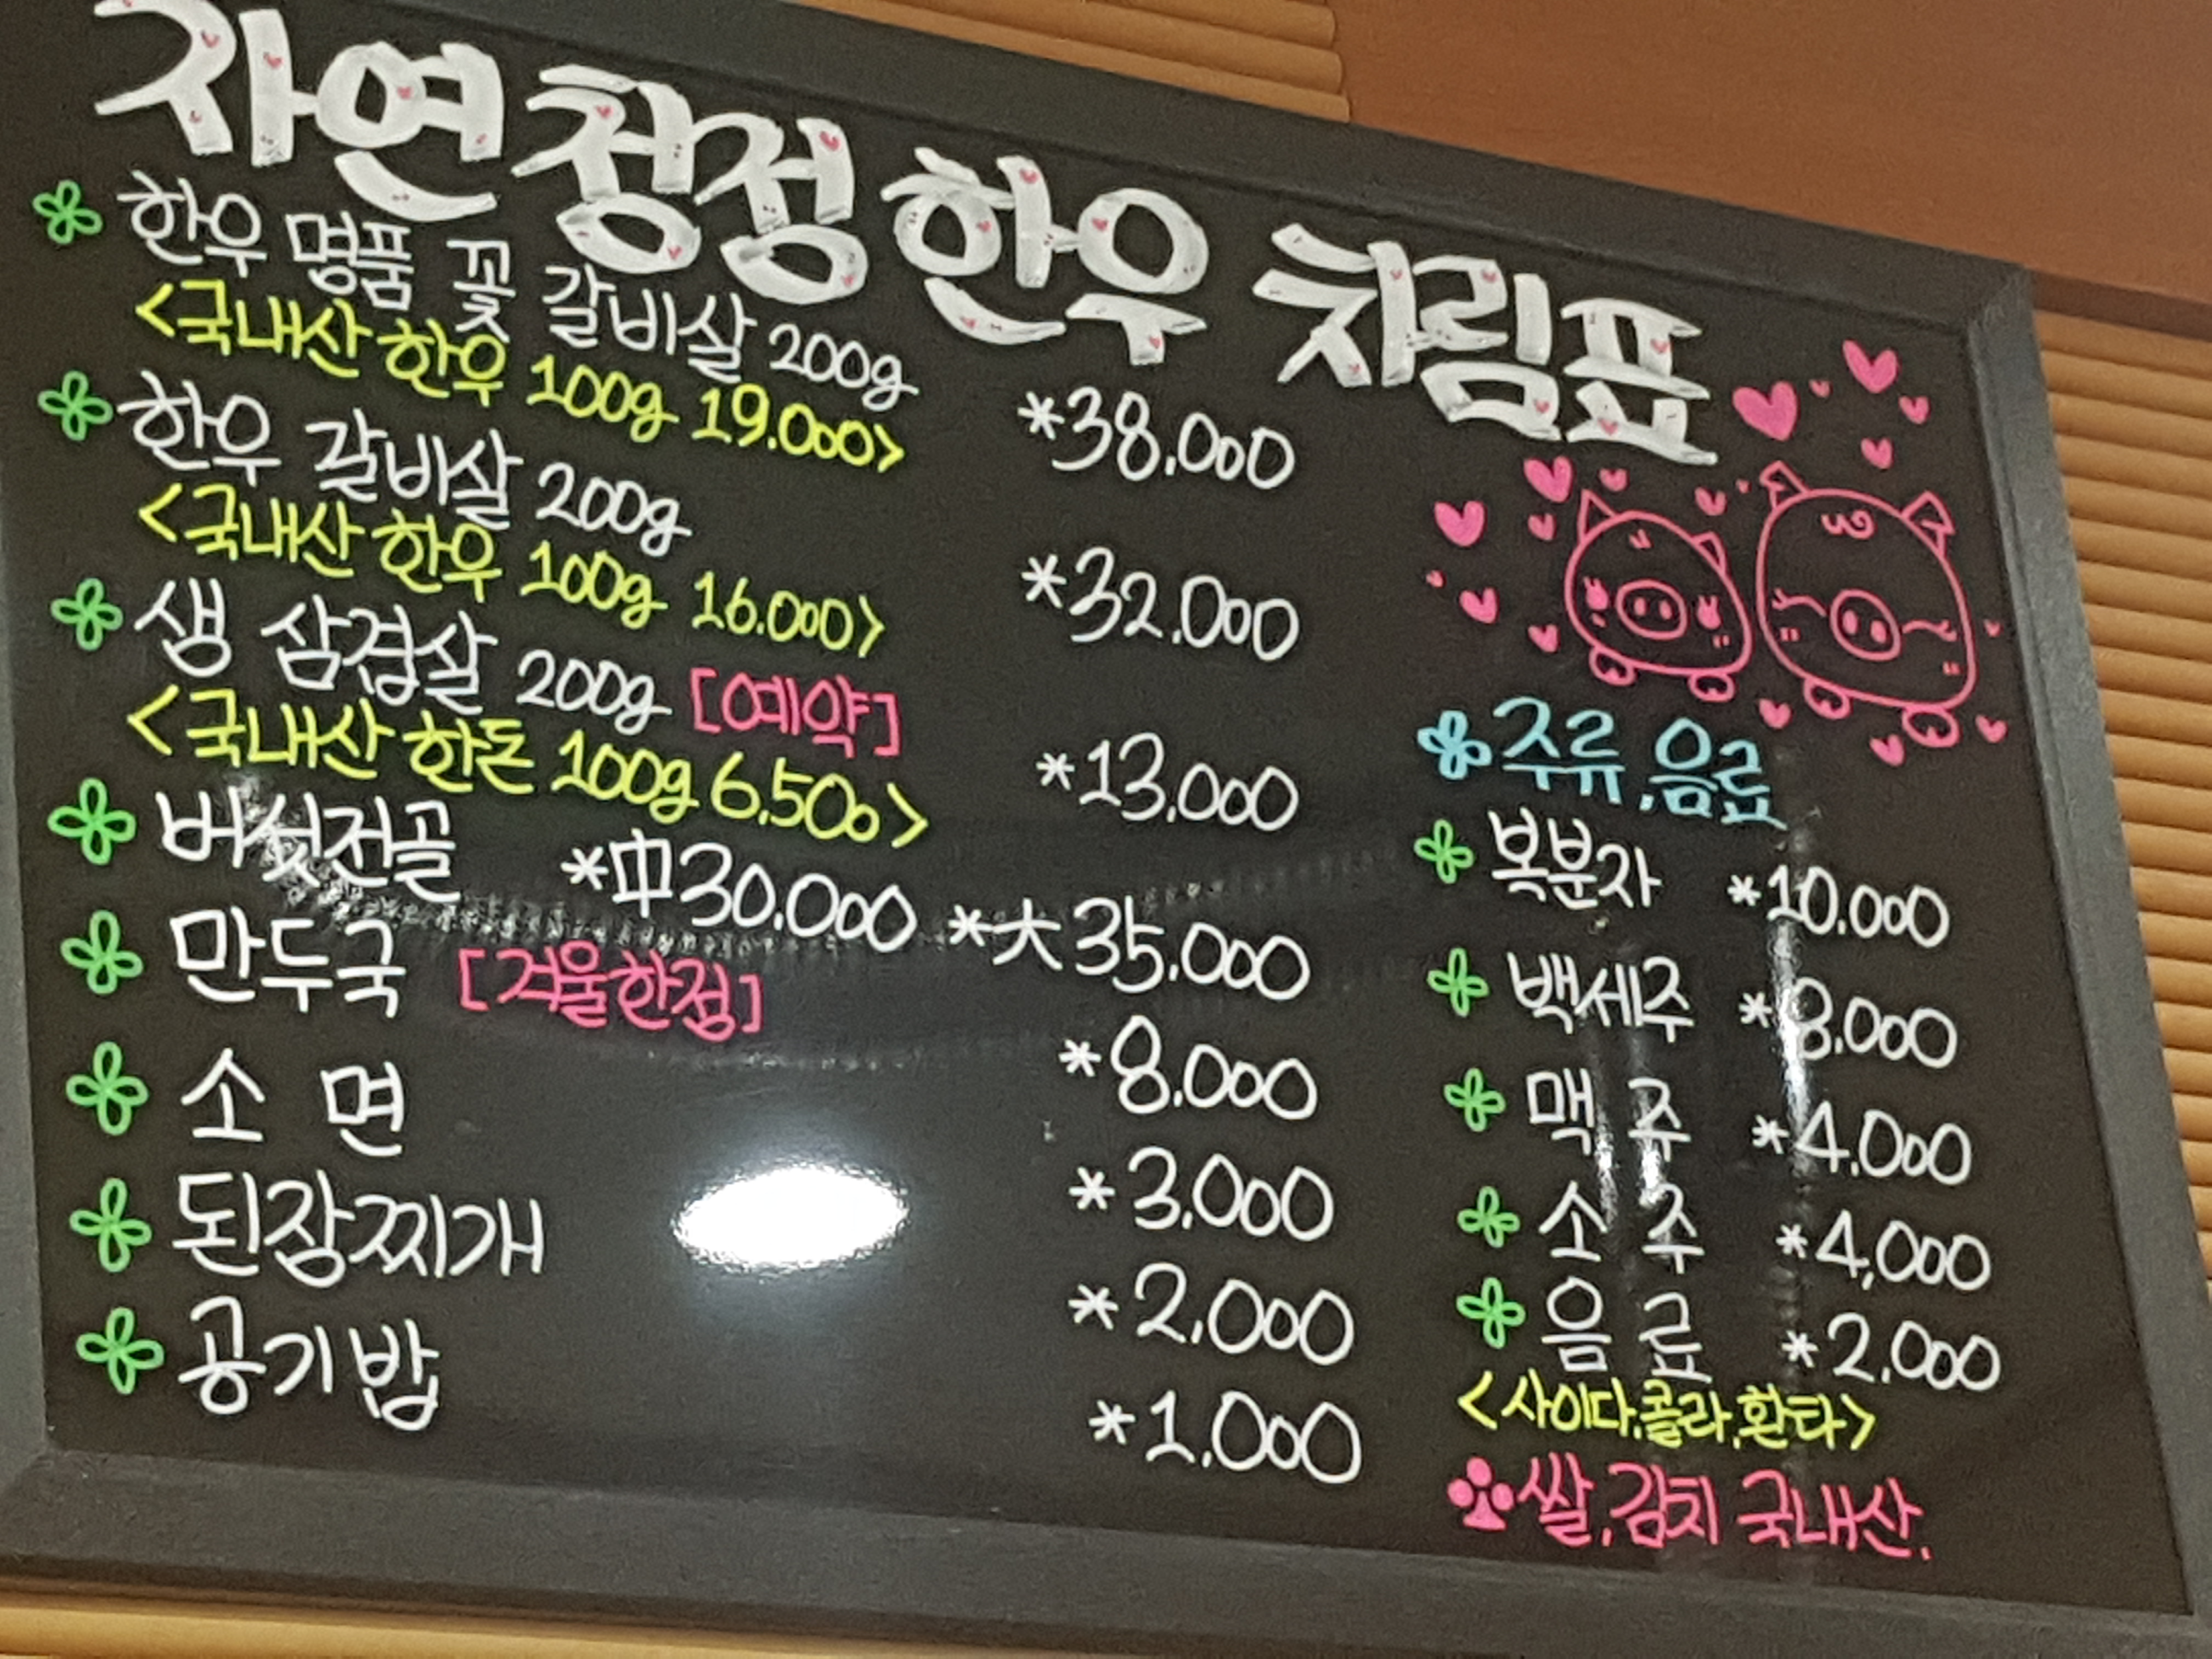 자연청정한우 차림표
한우 명품 꽃 갈비살 200g *38.000
<국내산 한우 100g 19.000>
한우 갈비살 200g *32.000
<국내산 한우 100g 16.000>
생 삼겹살 200g [예약] *13,000
<국내산 한돈 100g 6.500>
버섯전골 *中30.000 *大35.000
만두국 [겨울한정] *8.000
소 면 *3.000
된장찌개 *2.000
공기밥 *1.000
주류.음료
복분자 *10.000
백세주 *8.000
맥 주 *4.000
소 주 *4,000
음 료 *2.000
<사이다.콜라.환타>
쌀.김치 국내산.